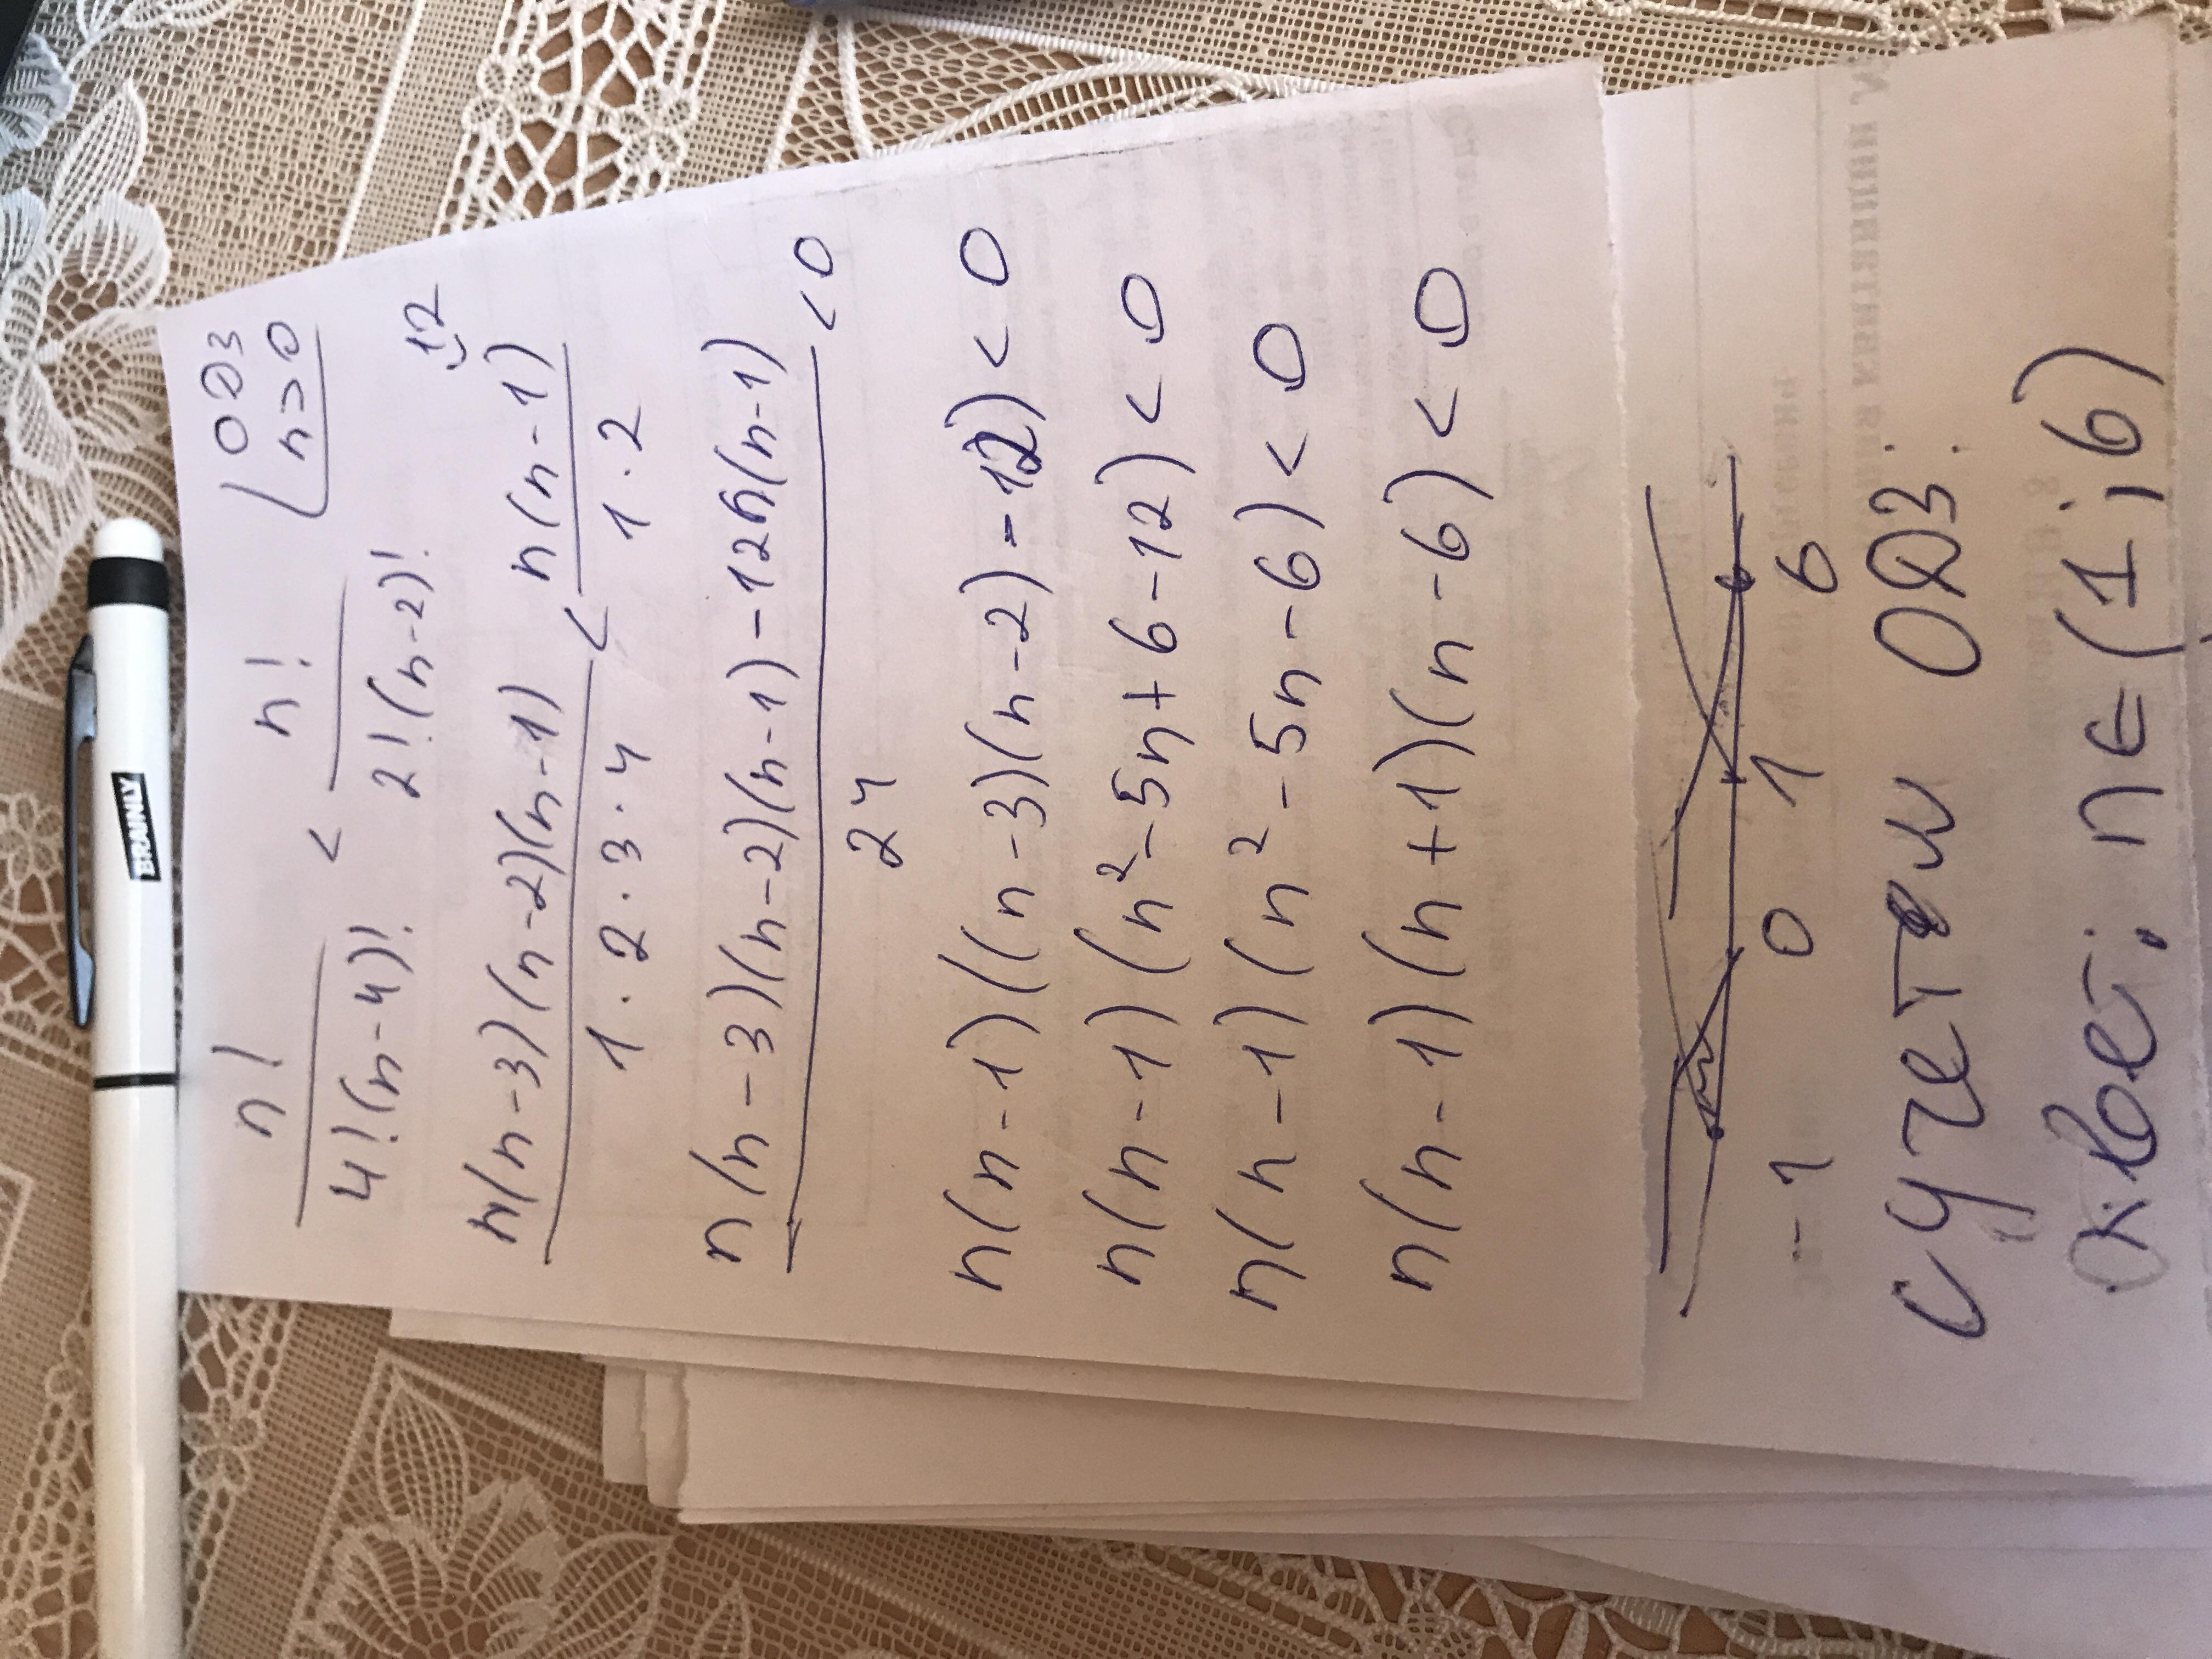 BRAINLY
ОДЗ
n≥0
n! / 4!(n-4)! < n! / 2!(n-2)!
n(n-3)(n-2)(n-1) / 1·2·3·4 < n(n-1) / 1·2
12
n(n-3)(n-2)(n-1)-12n(n-1) / 24 <0
n(n-1)((n-3)(n-2)-12)<0
n(n-1)(n²-5n+6-12)<0
n(n-1)(n²-5n-6)<0
n(n-1)(n+1)(n-6)<0
-1 0 1 6
с учетем ОДЗ:
ответ: n∈(1;6)